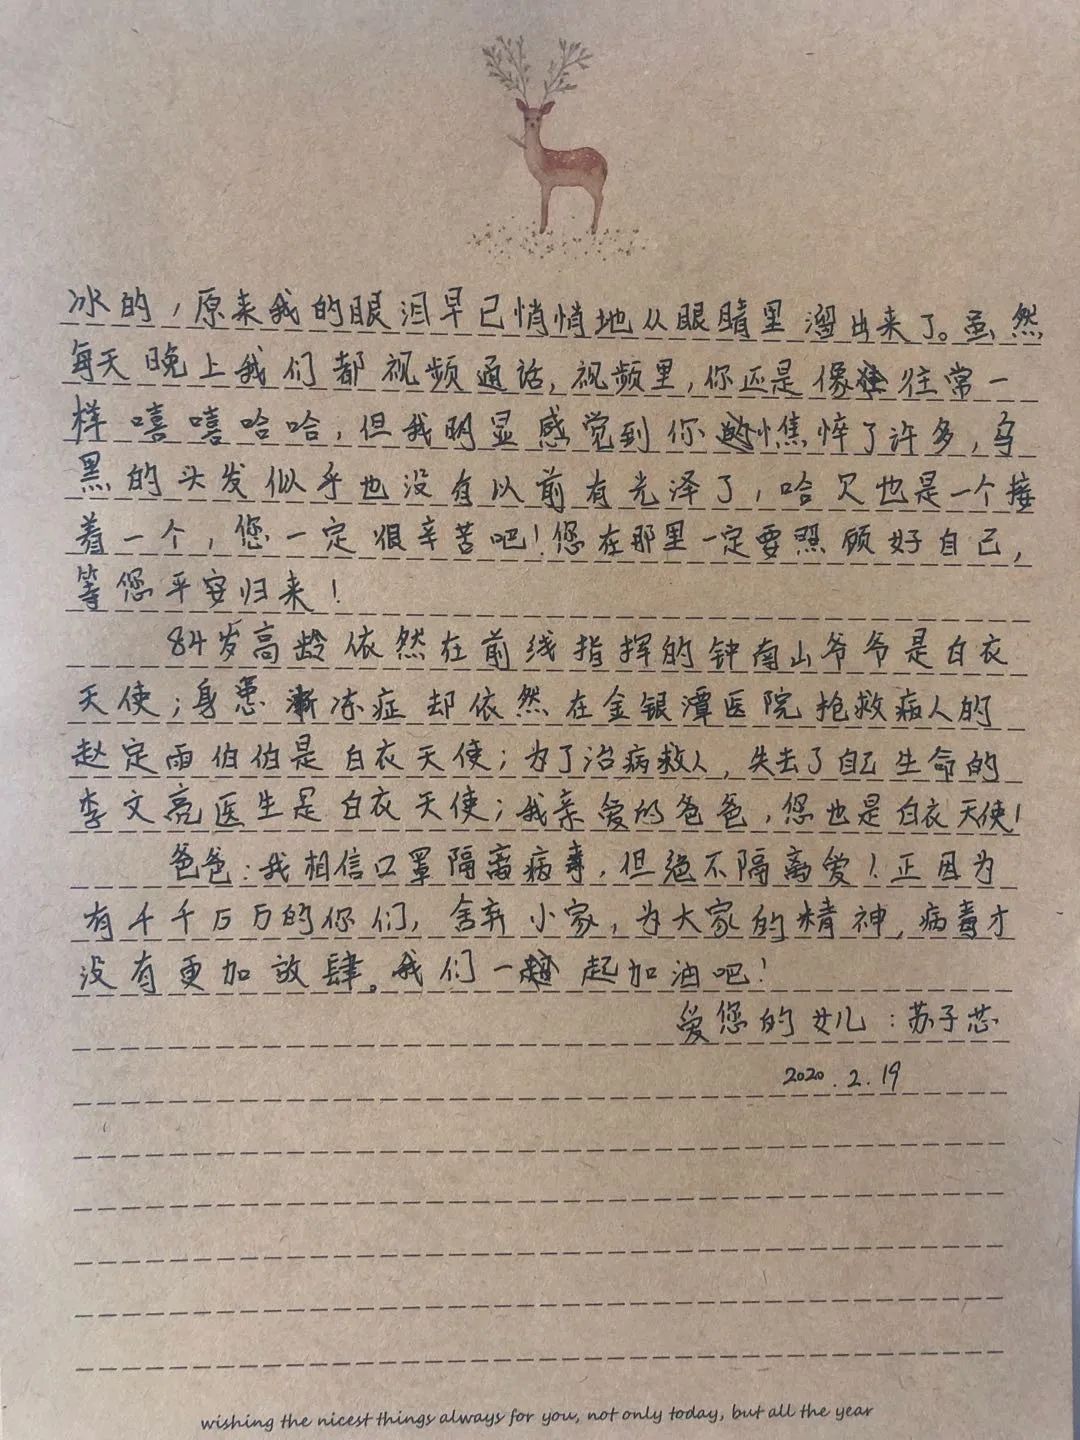 冰的，原来我的眼泪早已悄悄地从眼睛里溜出来了。虽然
每天晚上我们都视频通话，视频里，你还是像往常一
样嘻嘻哈哈，但我明显感觉到你憔悴了许多，乌
黑的头发似乎也没有以前有光泽了，哈欠也是一个接
着一个，您一定很辛苦吧！您在那里一定要照顾好自己，
等您平安归来！
84岁高龄依然在前线指挥的钟南山爷爷是白衣
天使；身患渐冻症却依然在金银潭医院抢救病人的
赵定雨伯伯是白衣天使；为了治病救人，失去了自己生命的
李文亮医生是白衣天使；我亲爱的爸爸，您也是白衣天使！
爸爸：我相信口罩隔离病毒，但绝不隔离爱！正因为
有千千万万的你们，舍弃小家，为大家的精神，病毒才
没有更加放肆。我们一起加油吧！
爱您的女儿：苏子芯
2020.2.19
wishing the nicest things always for you, not only today, but all the year